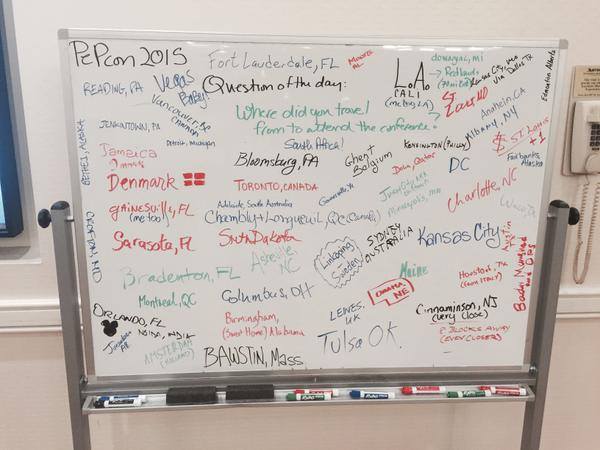 PePcon 2015
Fort Lauderdale, FL
Question of the day:
Where did you travel
from to attend the conference?
South Africa!
L.A.
CALI
READING, PA
Vegas
Baby!
Vancouver, BC
Canada
JENKINTOWN, PA
Detroit, Michigan
BETHEL, ALASKA
Jamaica
Denmark
Bloomsburg, PA
Ghent
Belgium
KENSINGTON (PHILLY)
Doha, Qatar
DC
Anaheim, CA
Albany, NY
St. Louis
+1
Fairbanks,
Alaska
Edmonton Alberta
Kansas City, MO
via Dallas TX
TORONTO, CANADA
Gainesville, FL
(me too!)
Adelaide, South Australia
Chambly + Longueuil, Qc Canada
Minneapolis, MN
Charlotte, NC
Waco, TX
CROFTON, MD
Sarasota, FL
South Dakota
Asheville
NC
Linköping
Sweden
SYDNEY
AUSTRALIA
Kansas City
Bradenton, FL
Maine
Houston, TX
Montreal, QC
Columbus, OH
OMAHA,
NE
ORLANDO, FL
NOIDA, INDIA
Birmingham,
(Sweet Home) Alabama
LEWES,
UK
Cinnaminson, NJ
(very close)
8 BLOCKS AWAY
(EVEN CLOSER!)
AMSTERDAM
(HOLLAND)
BAWSTIN, Mass
Tulsa OK.